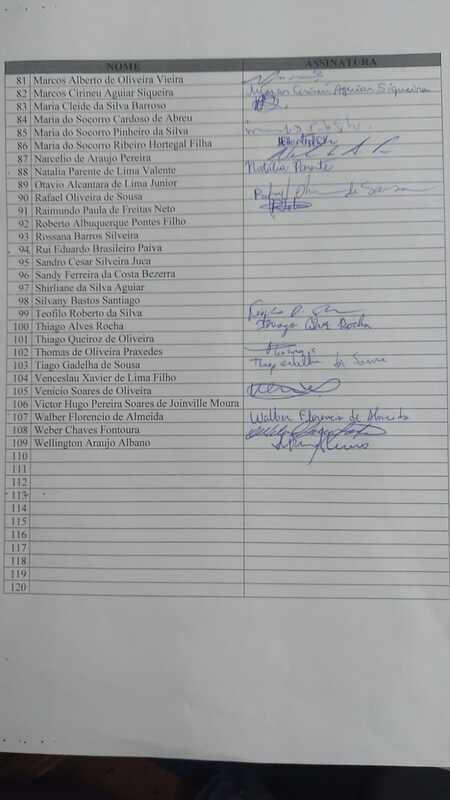 NOME ASSINATURA
81 Marcos Alberto de Oliveira Vieira
82 Marcos Cirineu Aguiar Siqueira Marcos Cirineu Aguiar Siqueira
83 Maria Cleide da Silva Barroso
84 Maria do Socorro Cardoso de Abreu
85 Maria do Socorro Pinheiro da Silva
86 Maria do Socorro Ribeiro Hortegal Filha
87 Narcelio de Araujo Pereira
88 Natalia Parente de Lima Valente Natália Parente
89 Otavio Alcantara de Lima Junior
90 Rafael Oliveira de Sousa
91 Raimundo Paula de Freitas Neto
92 Roberto Albuquerque Pontes Filho
93 Rossana Barros Silveira
94 Rui Eduardo Brasileiro Paiva
95 Sandro Cesar Silveira Juca
96 Sandy Ferreira da Costa Bezerra
97 Shirliane da Silva Aguiar
98 Silvany Bastos Santiago
99 Teofilo Roberto da Silva
100 Thiago Alves Rocha Thiago Alves Rocha
101 Thiago Queiroz de Oliveira
102 Thomas de Oliveira Praxedes
103 Tiago Gadelha de Sousa Tiago Gadelha de Sousa
104 Venceslau Xavier de Lima Filho
105 Venicio Soares de Oliveira
106 Victor Hugo Pereira Soares de Joinville Moura
107 Walber Florencio de Almeida Walber Florencio de Almeida
108 Weber Chaves Fontoura
109 Wellington Araujo Albano
110
111
112
113
114
115
116
117
118
119
120